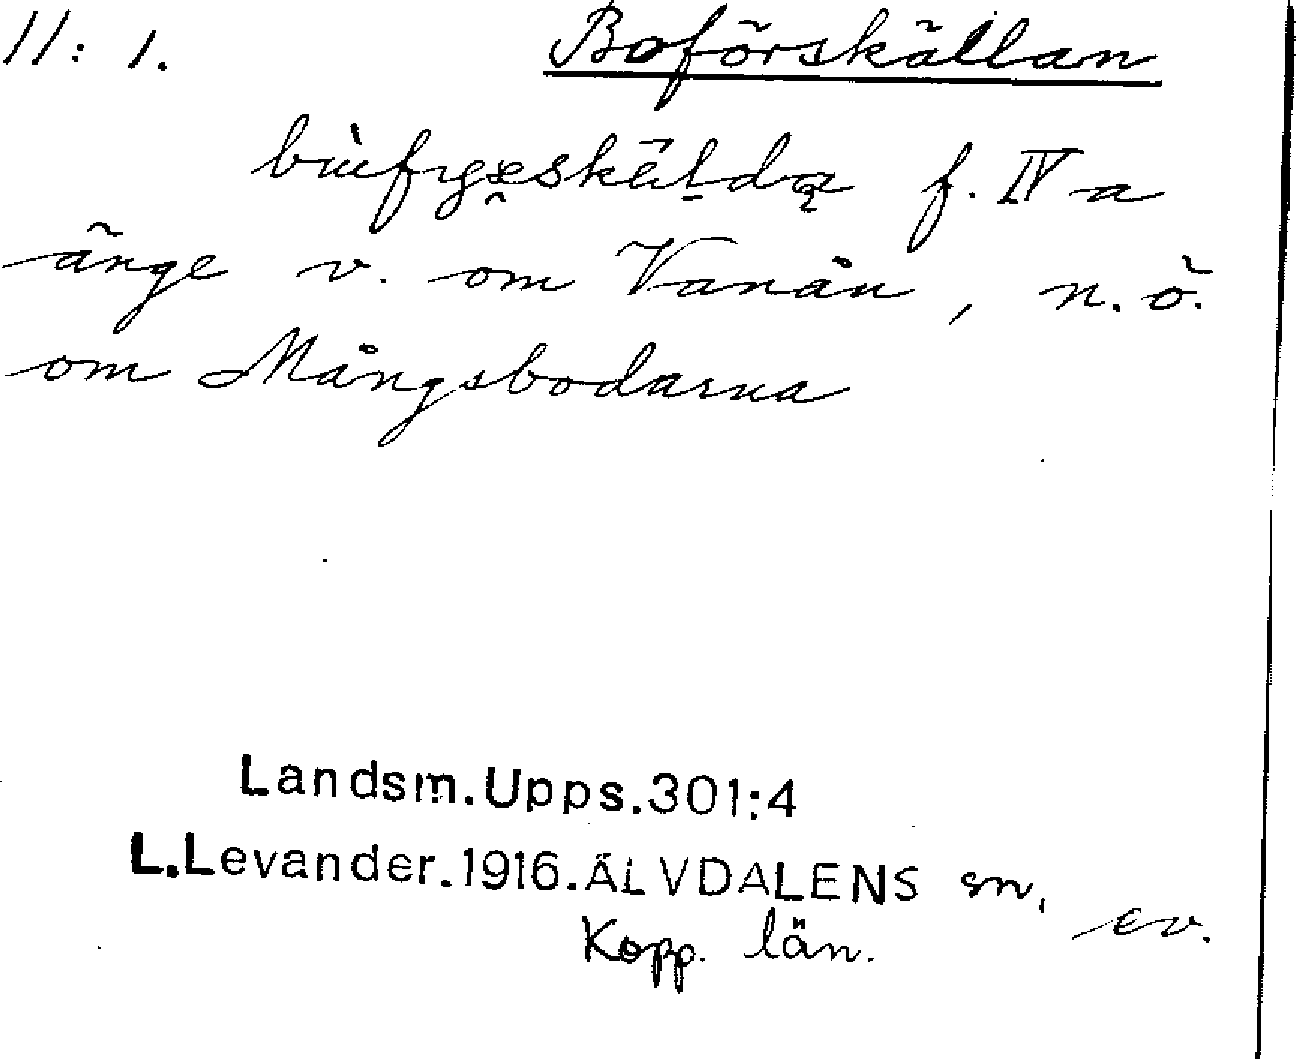 11:1. Boförskällan
bùfyṛe̯skä́l̠dą f. IV a
änge v. om Vanån, n.ö.
om Mångsbodarna
Landsm.Upps.301:4
L.Levander.1916.ÄLVDALENS sn. ev.
Kopp. län.